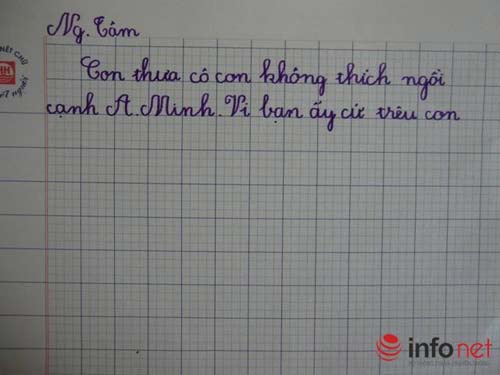 Ng. Tâm
Con thưa cô con không thích ngồi
cạnh A. Minh. Vì bạn ấy cứ trêu con
NÉT CHỮ
NẾT NGƯỜI
infonet